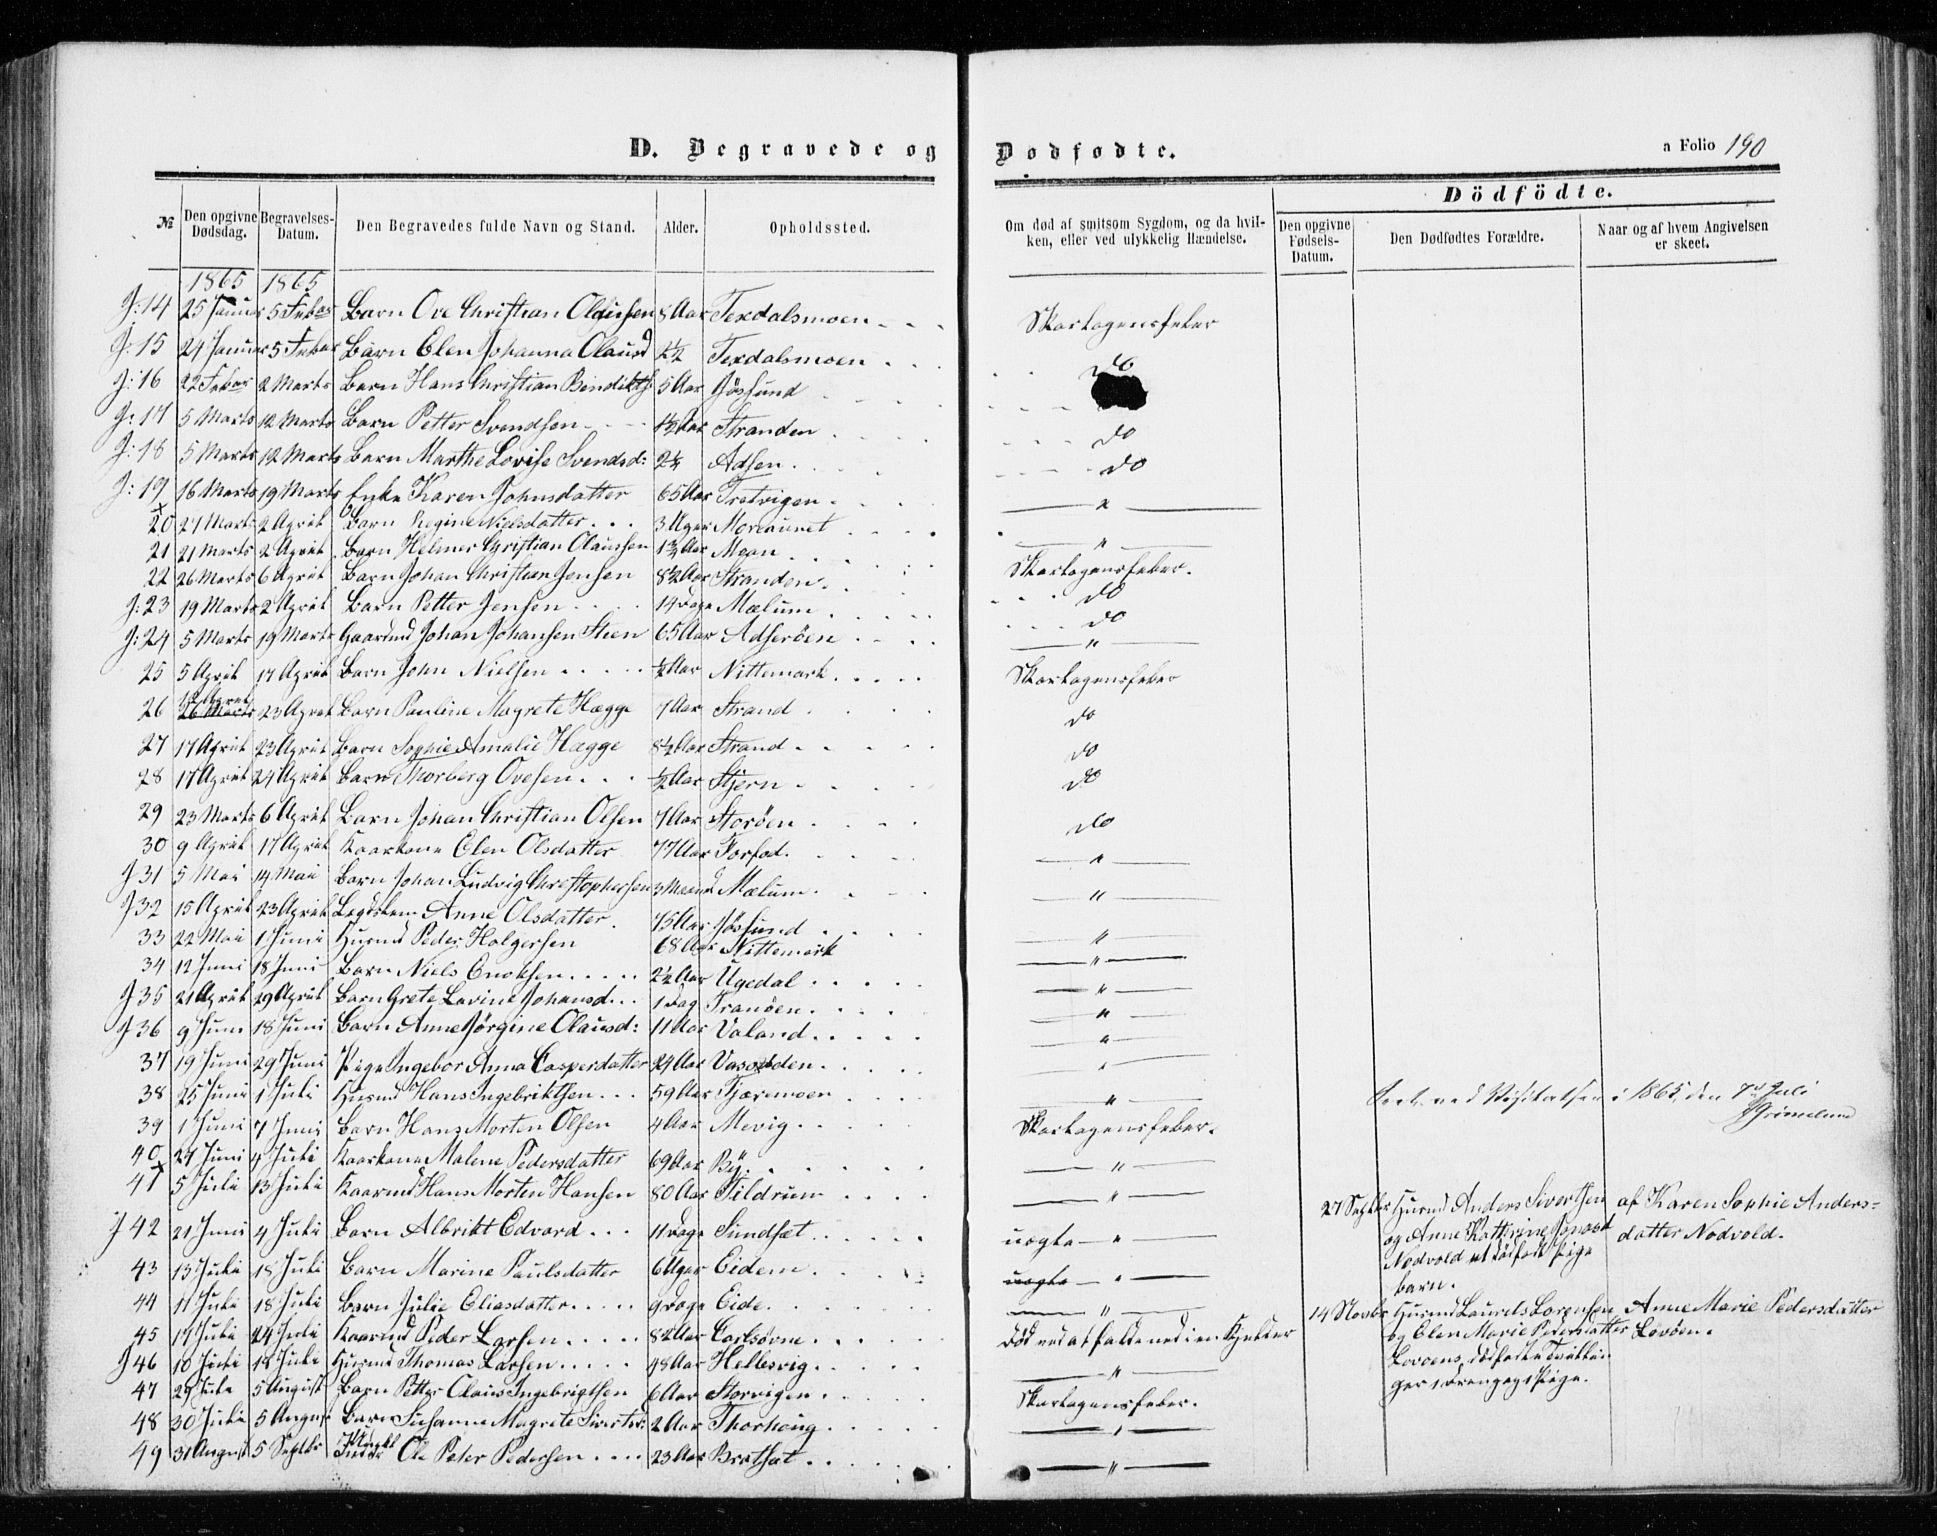 D. Begravede og Dødfødte.
a Folio 190
Dödfödte.
№ Den opgivne Dødsdag. Begravelses-Datum. Den Begravedes fulde Navn og Stand. Alder. Opholdssted. Om død af smitsom Sygdom, og da hvilken, eller ved ulykkelig Hændelse. Den opgivne Fødsels-Datum. Den Dødfødtes Forældre. Naar og af hvem Angivelsen er skeet.
1865 1865
J: 14 25 Januar 5 Febar Barn Ove Christian Olaussen 8 Aar Texdalsmoen Skarlagensfeber
J: 15 24 Januar 5 Febar Barn Elen Johanna Olausd 2½ Texdalsmoen do
J: 16 22 Febar 2 Marts Barn Hans Christian Bendikts 5 Aar Jøssund
J: 17 5 Marts 12 Marts Barn Petter Svendsen 4½ Aar Stranden do
J: 18 5 Marts 12 Marts Barn Marthe Lovise Svendsd: 2¼ Adsen do
J: 19 16 Marts 19 Marts Enke Karen Johnsdatter 65 Aar Tretvigen "
20 27 Marts 2 April Barn Regine Nielsdatter 3 Uger Moeaunet "
21 21 Marts 2 April Barn Helmer Christian Olaussen 1¾ Aar Moan Skarlagensfeber.
22 26 Marts 6 April Barn Johan Christian Jensen 8½ Aar Stranden do
J: 23 19 Marts 2 April Barn Petter Jensen 14 Dage Mælum do
J: 24 5 Marts 19 Marts Gaarmd Johan Johansen Steen 65 Aar Adserøen "
25 5 April 17 April Barn John Nielsen ½ Aar Nittemark Skarlagensfeber
26 April 26 Marts 23 April Barn Pauline Magrete Hægge 7 Aar Strand do
27 17 April 23 April Barn Sophie Amalie Hægge 8½ Aar Strand do
28 17 April 24 April Barn Thorberg Ovesen ½ Aar Stjern do
29 23 Marts 6 April Barn Johan Christian Olsen 7 Aar Storøen do
30 9 April 17 April Kaarkone Elen Olsdatter 77 Aar Forfod "
J 31 5 Mai 14 Mai Barn Johan Ludvig Christophersen 3 Maand Mælum "
J 32 15 April 23 April Legdslem Anne Olsdatter 75 Aar Jøssund "
33 22 Mai 1 Juni Husmd Peder Holgersen 68 Aar Nittemark "
34 12 Juni 18 Juni Barn Niels Enoksen 2½ Aar Ugedal "
J 35 21 April 29 April Barn Grete Lavine Johansd 1 Dag Tranøen "
J 36 9 Juni 18 Juni Barn Anne Jørgine Olausd: 11 Aar Valand "
37 19 Juni 29 Juni Pige Ingebor Anna Caspersdatter 24 Aar Vasodden "
38 25 Juni 1 Juli Husmd Hans Ingebriktsen 59 Aar Fjæremoen "
Seet ved Visitatsen i 1865, den 7de Juli
Grimelund
39 1 Juni 7 Juni Barn Hans Morten Olsen 4 Aar Mevig Skarlagensfeber.
40 27 Juni 4 Juli Kaarkone Malene Pedersdatter 69 Aar By "
41 5 Juli 13 Juli Kaarmd Hans Morten Hansen 80 Aar Tildrum "
J 42 21 Juni 4 Juli Barn Albrikt Edvard 11 Dage Sundsæt uægte "
43 13 Juli 18 Juli Barn Marine Paulsdatter 6 Uger Eidem uægte "
44 11 Juli 18 Juli Barn Julie Eliasdatter 9 Dage Eide "
45 17 Juli 24 Juli Kaarmd Peder Larsen 82 Aar Carlsøvne Død ved at falde ned i en Kjelder
J 46 10 Juli 18 Juli Husmd Thomas Larsen 48 Aar Hellesvig "
47 29 Juli 5 August Barn Petter Olaus Ingebrigtsen 6 Aar Storvigen Skarlagensfeber.
48 30 Juli 5 August Barn Susanne Magrete Sivertsd: 2 Aar Thorhoug "
49 31 August 5 Septbr Ole Peter Pedersen 23 Aar Brætsat "
27 Septbr Husmd Anders Sivertsen af Karen Sophie Anders-
og Anne Katterine Jonasd datter Nodvold.
Nodvold et dødfødt Pige
barn.
14 Novbr Husmd Laurets Lorentsen Anne Marie Pedersdatter
og Elen Marie Pedersdatter Lovøen.
Lovøens dødfødte Tvillin
ger 1 Dreng og 1 Pige.